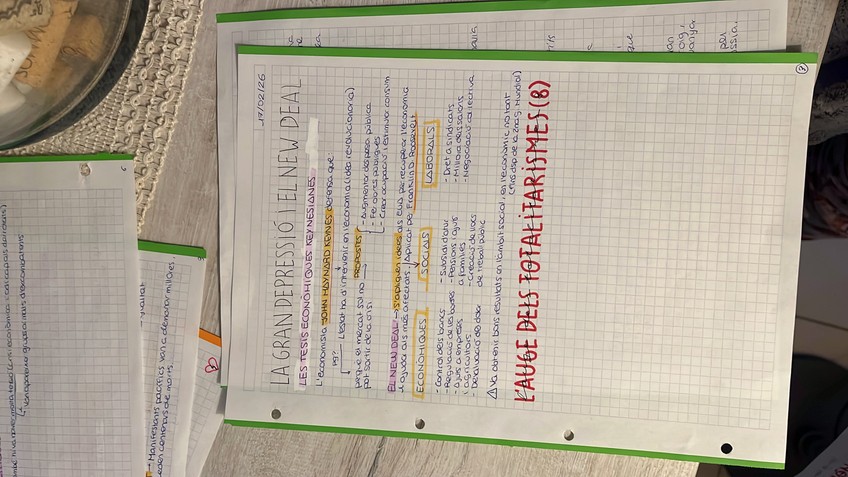 17/02/26
LA GRAN DEPRESSIÓ I EL NEW DEAL
LES TESIS ECONÒMIQUES KEYNESIANES
L'economista JOHN MAYNARD KEINES defensa que:
L'estat ha d'intervenir en l'economia (idea revolucionària)
pq?
perquè el mercat sol no
pot sortir de la crisi
PROPOSTES
- Augmentar despesa pública
- Fer obres públiques
- Crear ocupació i estimular consum
EL NEW DEAL → S'apliquen idees als EUA per recuperar l'economia
i ajudar als més afectats. Aplicat per Franklin D. Roosevelt
ECONÒMIQUES
- Control dels bancs
- Regulació de les bores
- Ajus a empreses
i agricultors
- Devaluació del dòlar
SOCIALS
- Subsidi d'atur
- Pensions i ajus
a famílies
- Creació de llocs
de treball públic
LABORALS
- Dret a sindicats
- Millora dels salaris
- Negociació col·lectiva
Va obtenir bons resultats en l'àmbit social, en l'econòmic no tant
(fins dsp de la 2na G. Mundial)
L'AUGE DELS TOTALITARISMES (8)
- Manifestants pacífics van a demanar millores